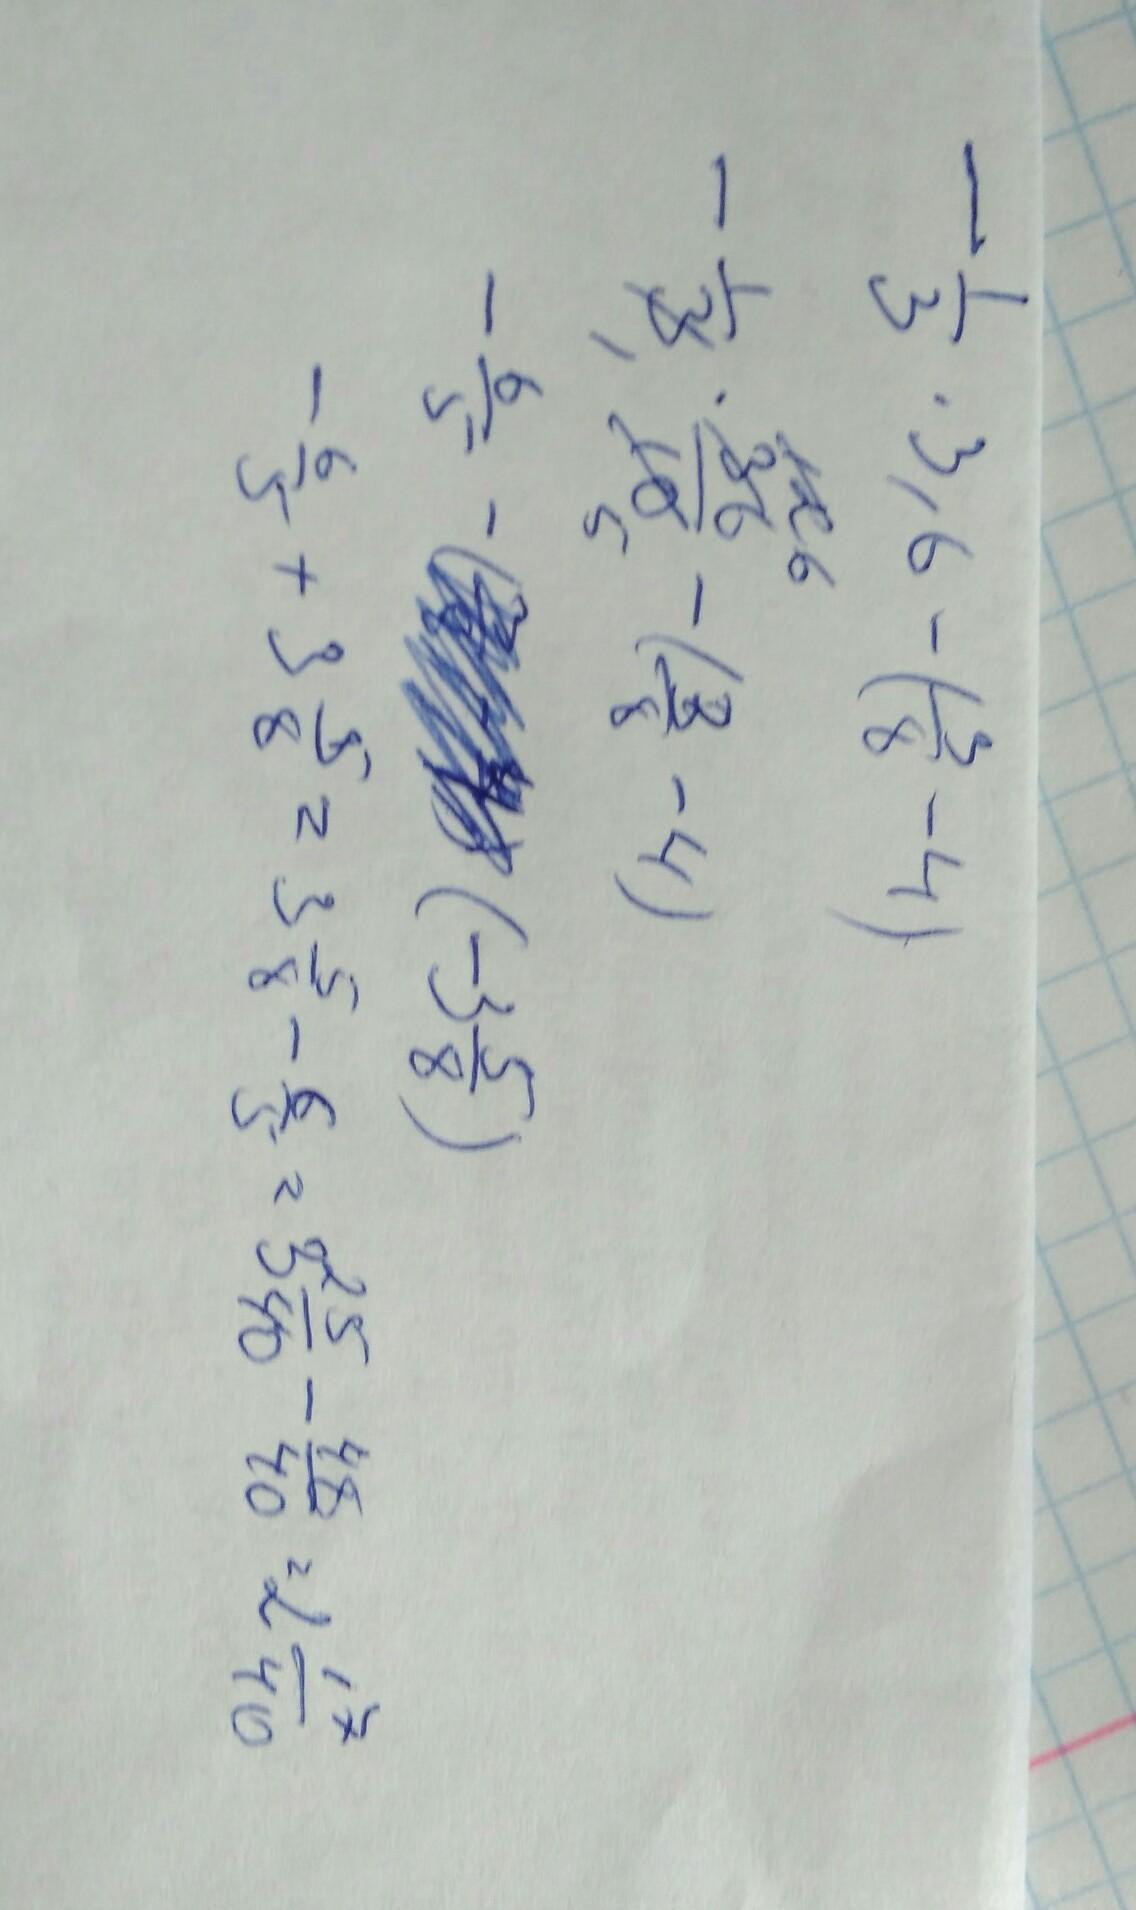 - 1/3 · 3,6 - (3/8 - 4)
- 1/3 1 · 36/10 12 6 5 - (3/8 - 4)
- 6/5 - (-3 5/8)
- 6/5 + 3 5/8 = 3 5/8 - 6/5 = 3 25/40 - 48/40 = 2 17/40